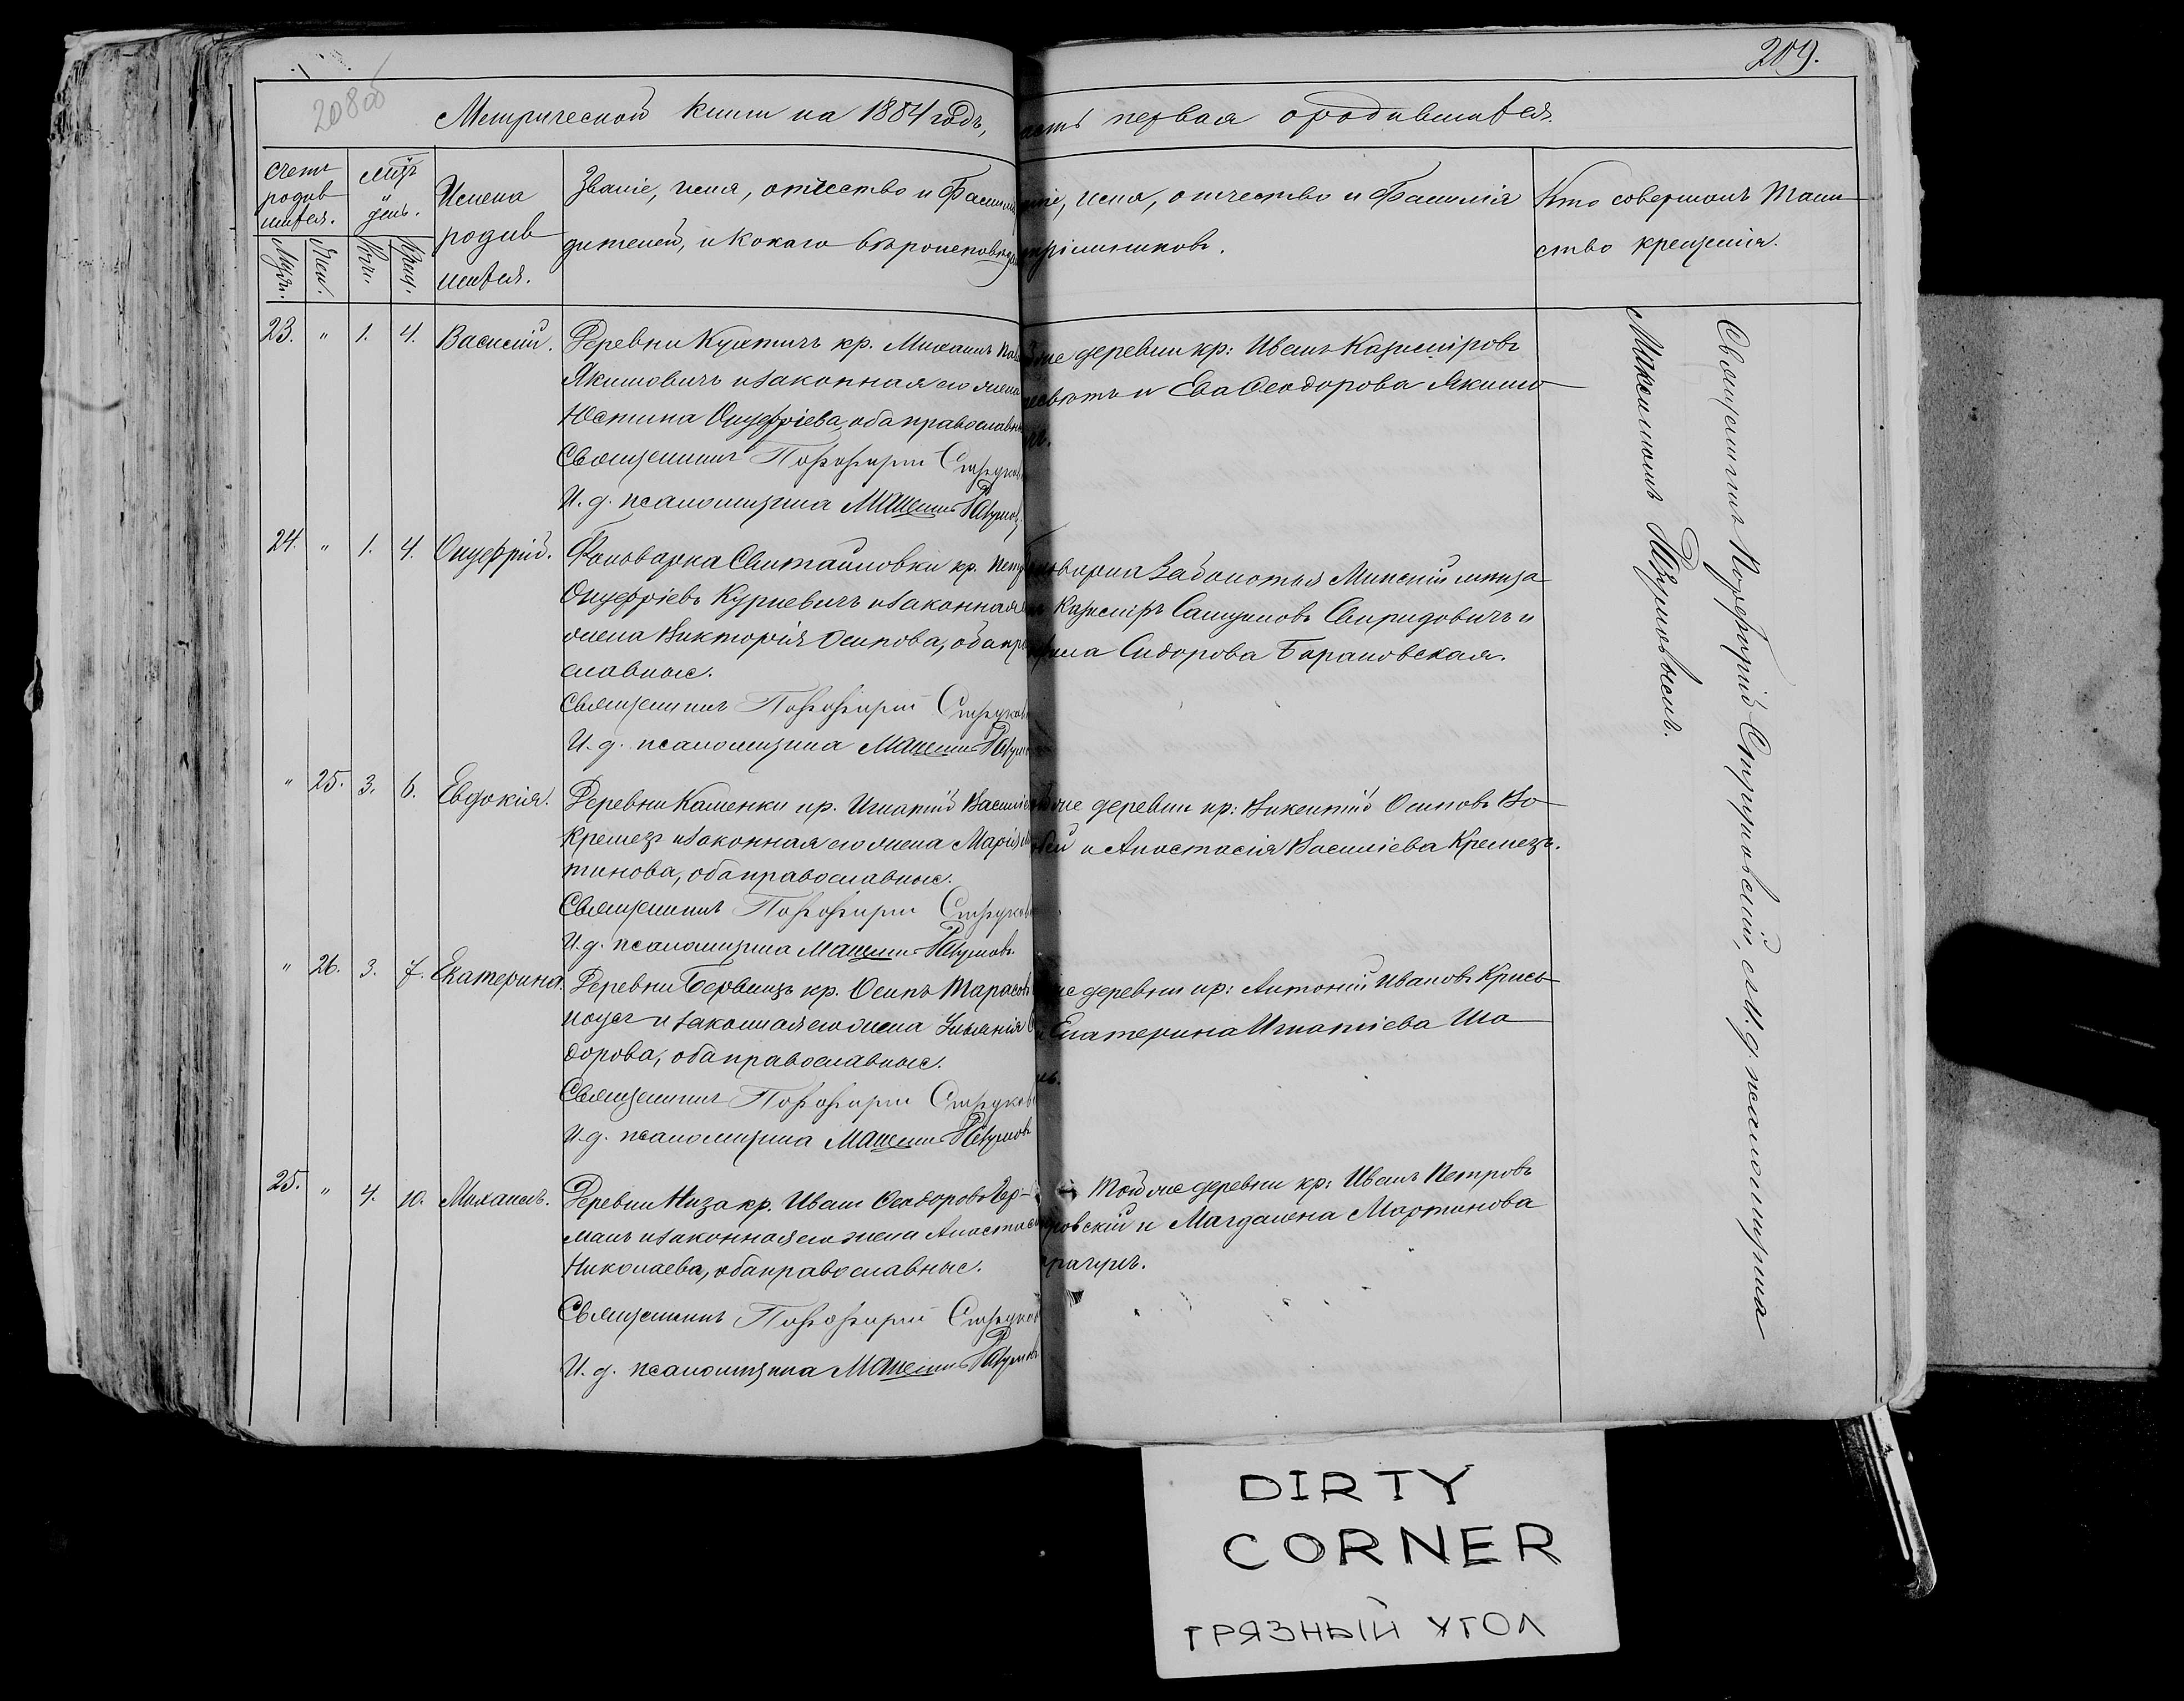 208об
209.
Метрической книги на 1884 годъ,
асть первая о родившихся.
Счетъ родив шихся.
Муж.
Жен.
Мѣсяцъ и день.
Рожд.
Крещ.
Имена родив шихся.
Званіе, имя, отчество и Фамилі
дителей, и какого вѣроисповѣдан
ніе, имя, отчество и Фамилія
пріемниковъ.
Кто совершалъ Таин
ство крещенія.
23. " 1. 4. Василій.
Деревни Кухтичъ кр. Михаилъ Пав
Якимовичъ и законная его жена
Юстина Онуфріева, оба православн
Священникъ Порфирій Струков
И. д. псаломщика
же деревни кр: Иванъ Казиміровъ
и Ева Ѳеодорова Якимо
24. " 1. 4. Онуфрій.
Фольварка Свитайловки кр. Петр
Онуфріевъ Курневичъ и законная
жена Викторія Осипова, оба пра
славные.
Священникъ Порфирій Струков
И. д. псаломщика
льварка Заболотья Минскій мѣща
Казиміръ Самуиловъ Свиридовичъ и
Сидорова Барановская.
" 25. 3. 6. Евдокія.
Деревни Каменки кр. Игнатій Василіе
Кремезъ и законная его жена Марія
тинова, оба православные.
Священникъ Порфирій Струков
И. д. псаломщика
же деревни кр: Викентій Осиповъ Во
и Анастасія Василіева Кремезъ.
" 26. 3. 7. Екатерина.
Деревни кр. Осипъ Тарасов
и законная его жена Ульянія
дорова, оба православные.
Священникъ Порфирій Струков
И. д. псаломщика
же деревни кр: Антоній Ивановъ Крись
Екатерина Игнатіева Ша
25. " 4. 10. Михаилъ.
Деревни Низа кр. Иванъ Ѳеодоровъ Гер-
манъ и законная его жена Анастасі
Николаева, оба православные.
Священникъ Порфирій Струков
И. д. псаломщика
Той же деревни кр: Иванъ Петровъ
ровскій и Магдалена Мартинова
Священникъ Порфирій Струковскій, съ И. д. псаломщика
DIRTY
CORNER
ГРЯЗНЫЙ УГОЛ